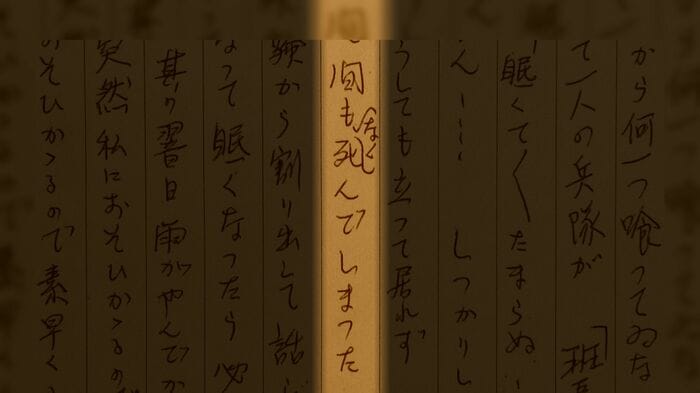 から何一つ喰ってゐな
て一人の兵隊が「班
眠くて〱たまらぬ…
ん………しつかりし
うしても立つて居れず
間もなく死んでしまつた
験から割り出して話し
なつて眠くなつたら必
其の翌日雨がやんでか
突然私におそひかゝるの
おそひかゝるので素早く